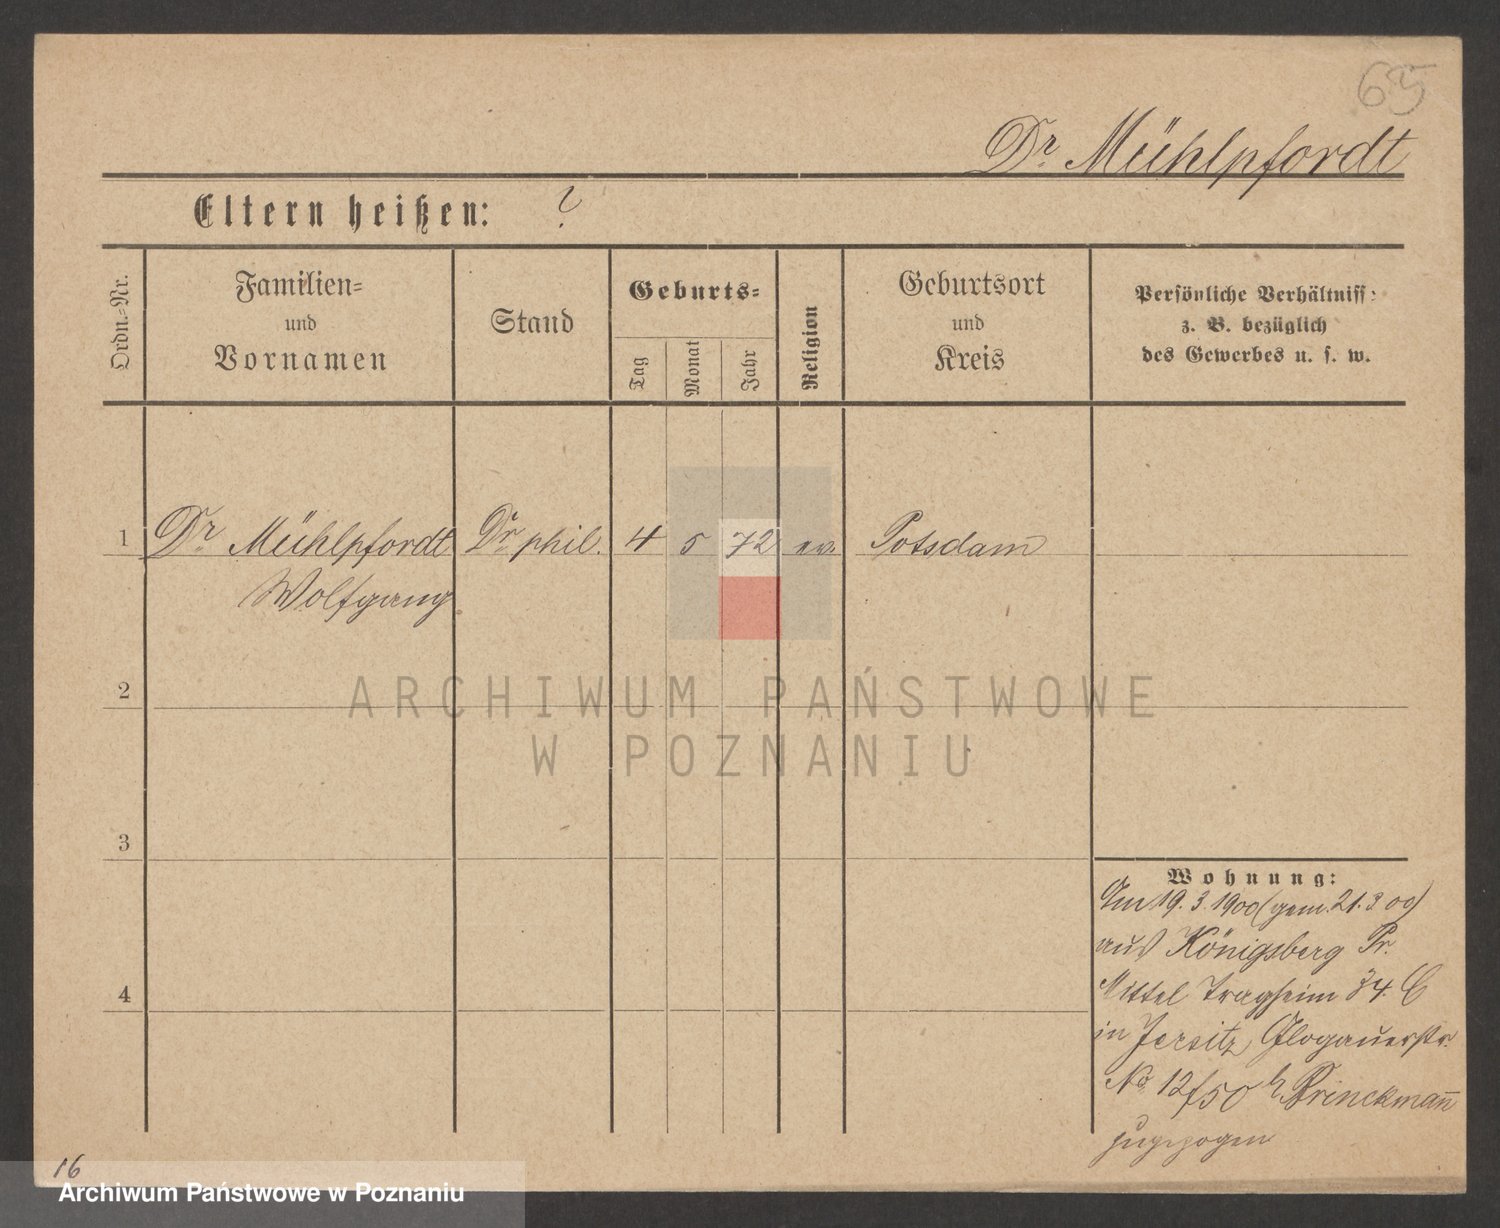 65
Dr. Mühlpfordt
Eltern heißen: ?
Ordn.-Nr.
Familien-
und
Vornamen
Stand
Geburts-
Tag
Monat
Jahr
Religion
Geburtsort
und
Kreis
Persönliche Verhältniss:
z. B. bezüglich
des Gewerbes u. s. w.
1 Dr. Mühlpfordt Dr. phil. 4 5 72 ev. Potsdam
Wolfgang
2
ARCHIWUM PAŃSTWOWE
W POZNANIU
3
Wohnung:
Am 19. 3. 1900 (gem. 21. 3 00)
aus Königsberg Pr.
Mittel Tragheim 34. C
in Jersitz, Glogauerstr.
4
No 12/50 b Brinckman̄
zugezogen
16
Archiwum Państwowe w Poznaniu